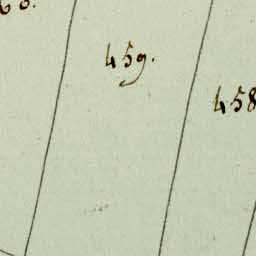 459.
458